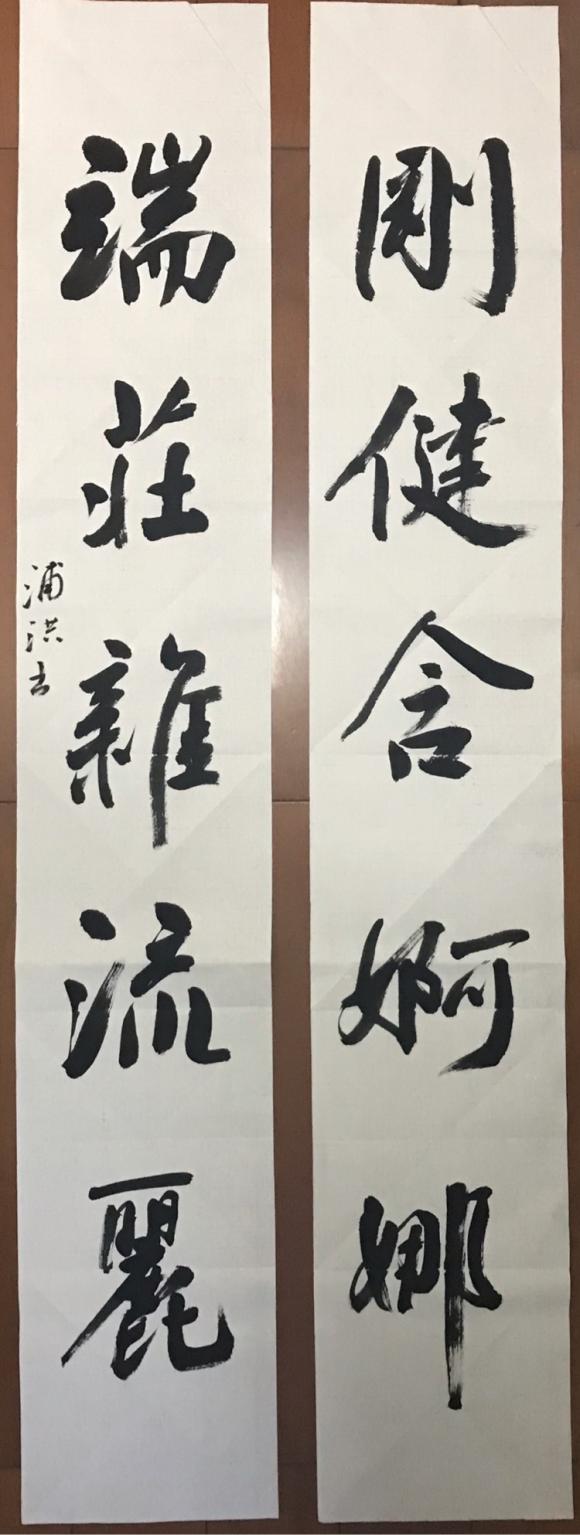 剛健含婀娜
端莊雜流麗
浦洪書